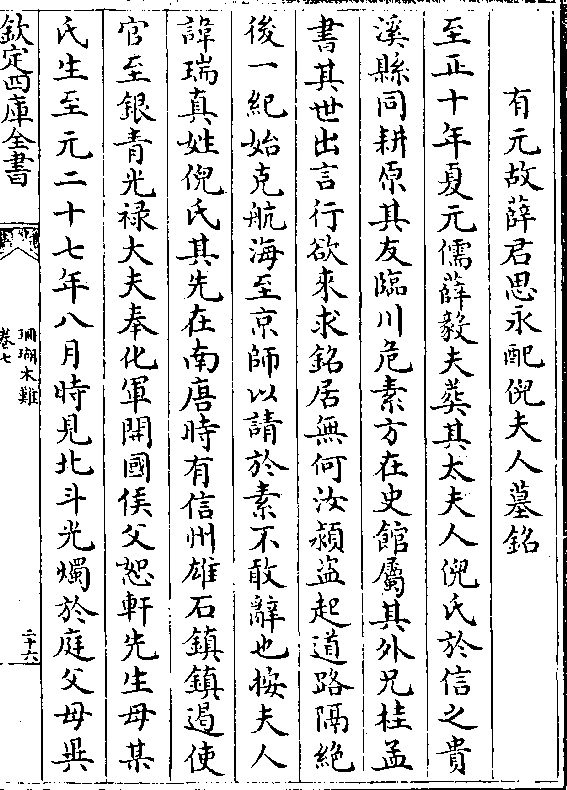 有元故薛君思永配倪夫人墓銘
至正十年夏元儒薛毅夫葬其太夫人倪氏於信之貴
溪縣同耕原其友臨川危素方在史館屬其外兄桂孟
書其世出言行欲來求銘居無何汝潁盜起道路隔絕
後一紀始克航海至京師以請於素不敢辭也按夫人
諱瑞真姓倪氏其先在南唐時有信州雄石鎮鎮遏使
官至銀青光祿大夫奉化軍開國侯父恕軒先生母某
氏生至元二十七年八月時見北斗光燭於庭父母異
欽定四庫全書
珊瑚木難
卷七
二十六